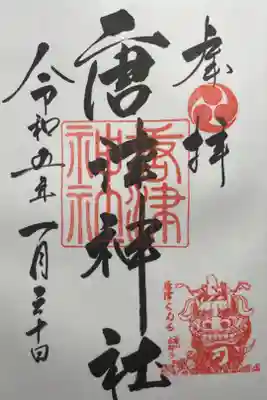 奉拝
唐津神社
令和五年一月三十日
唐津
神社
唐津くんち